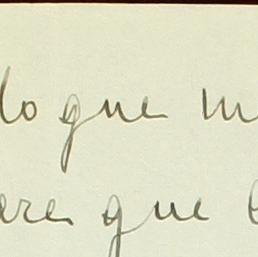 lo que m
ere que